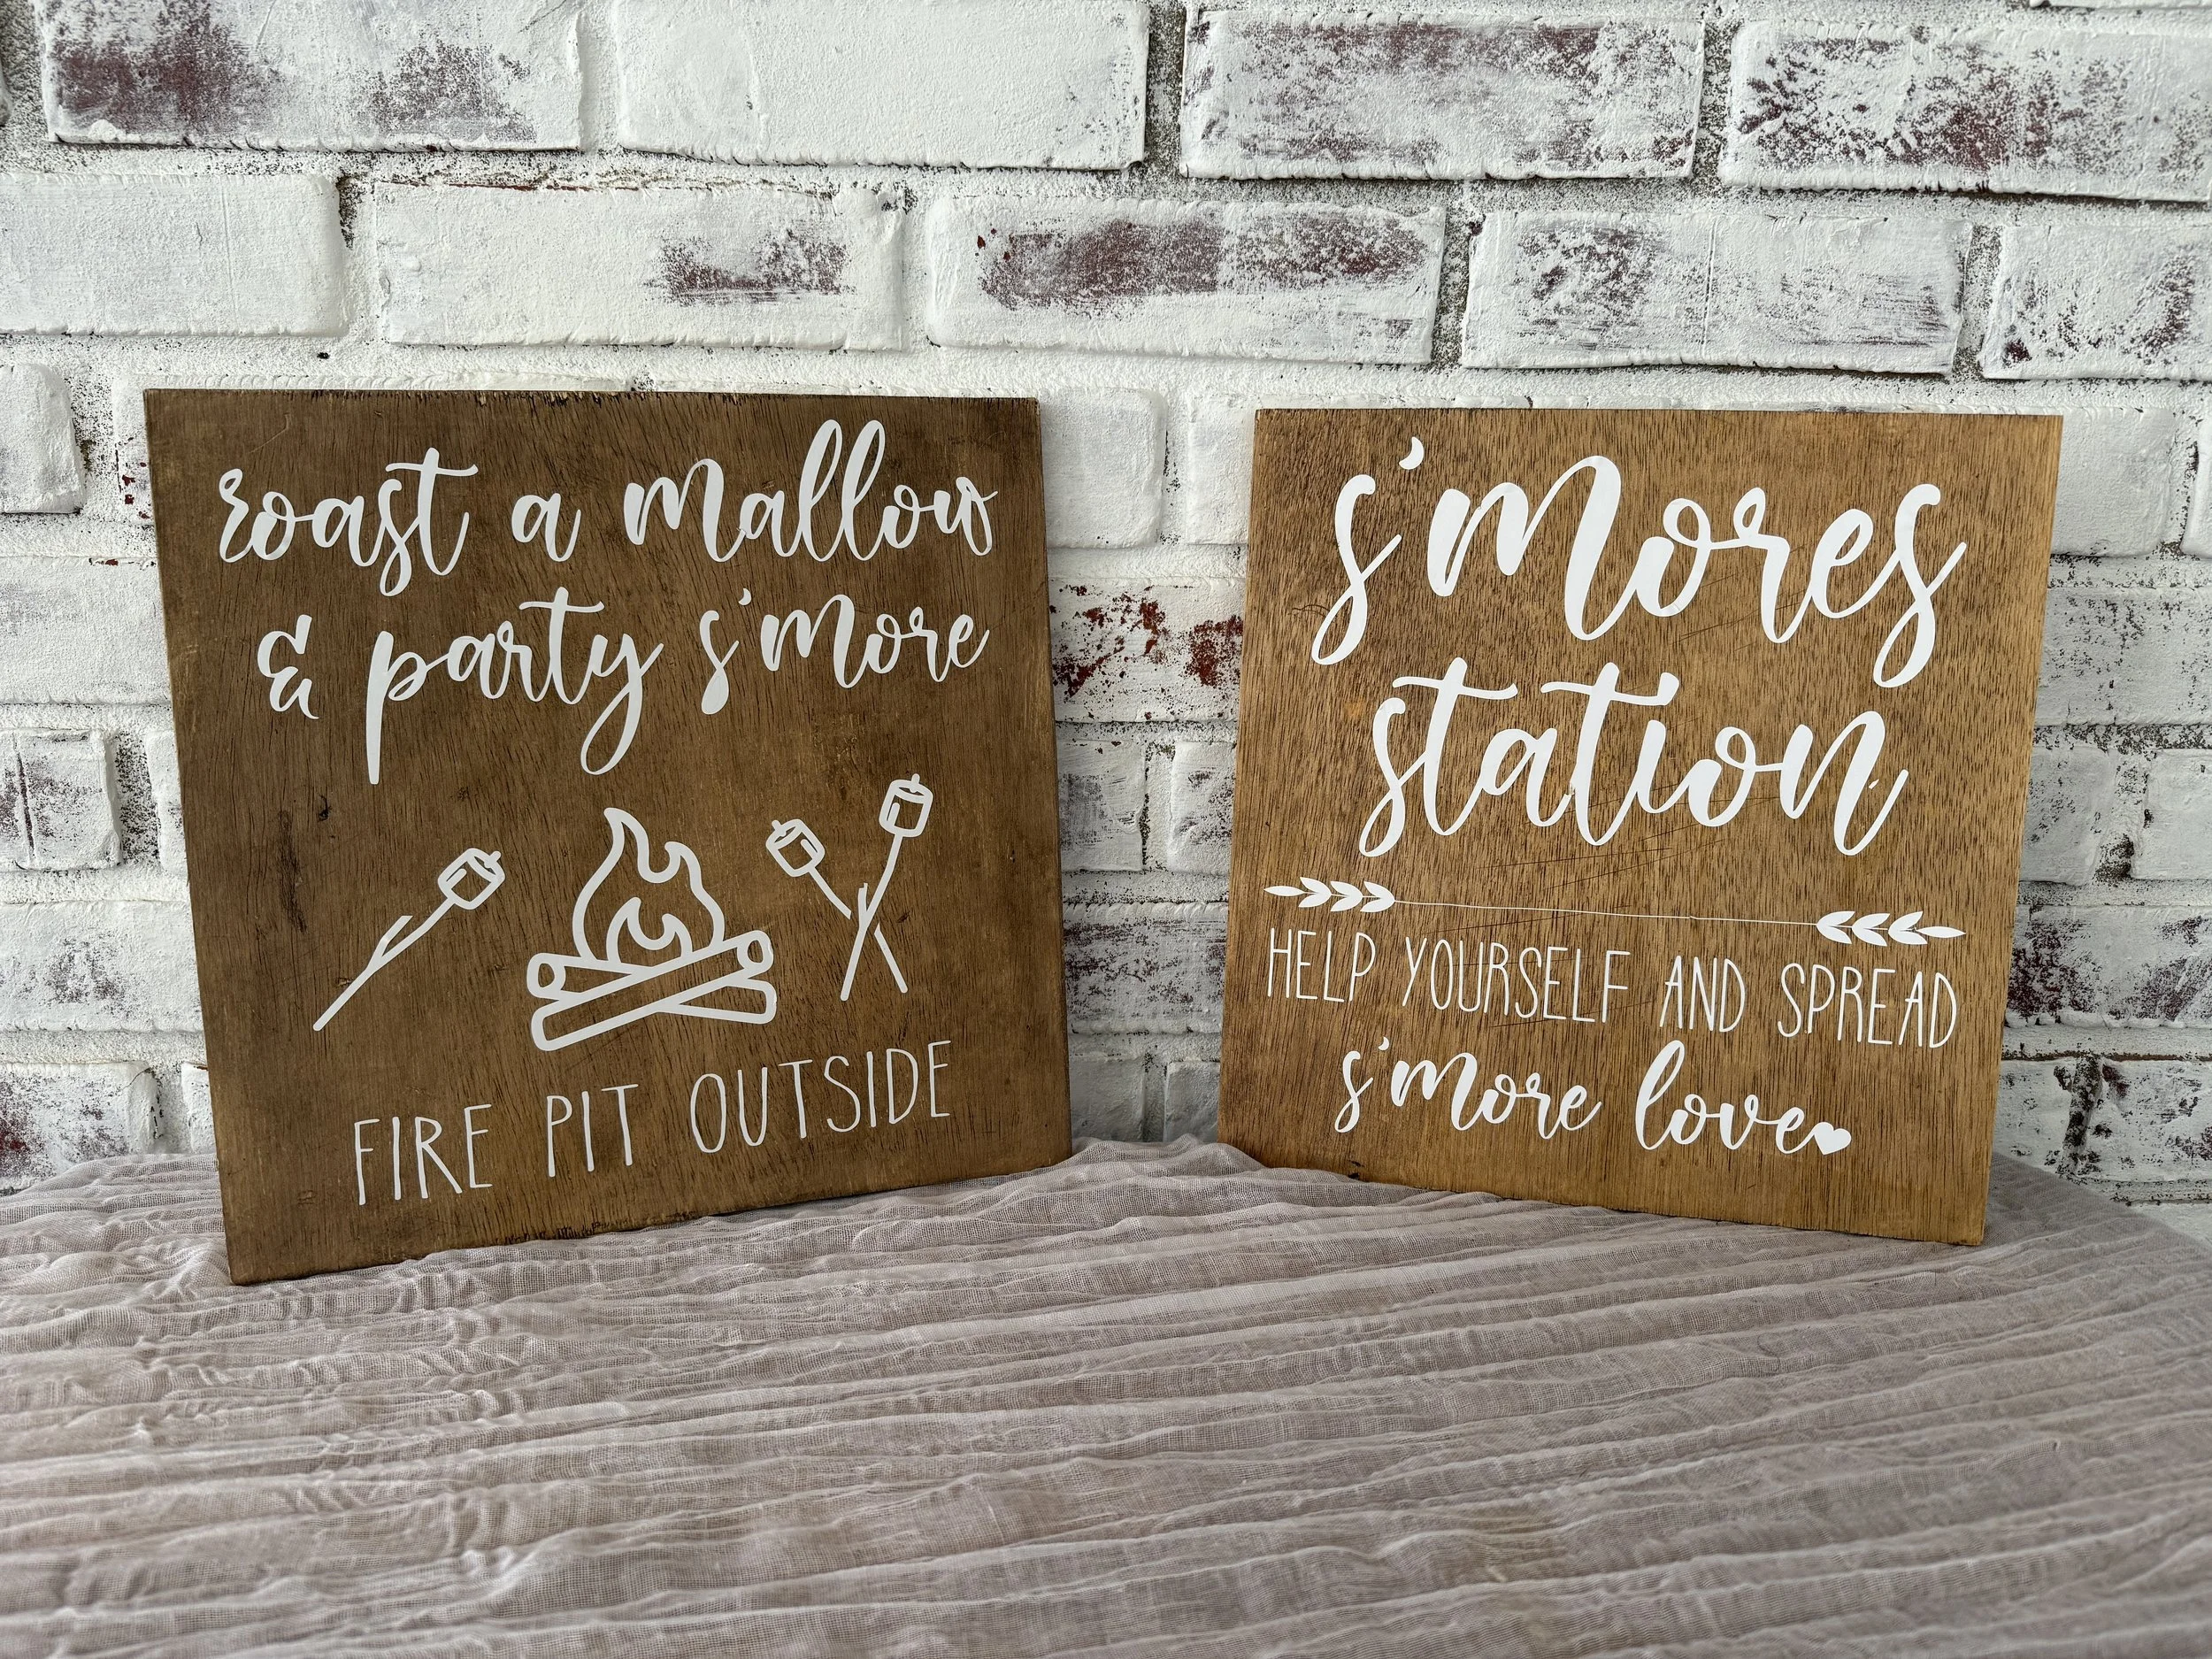 roast a mallow
& party s'more
FIRE PIT OUTSIDE
s'mores
station
HELP YOURSELF AND SPREAD
s'more love